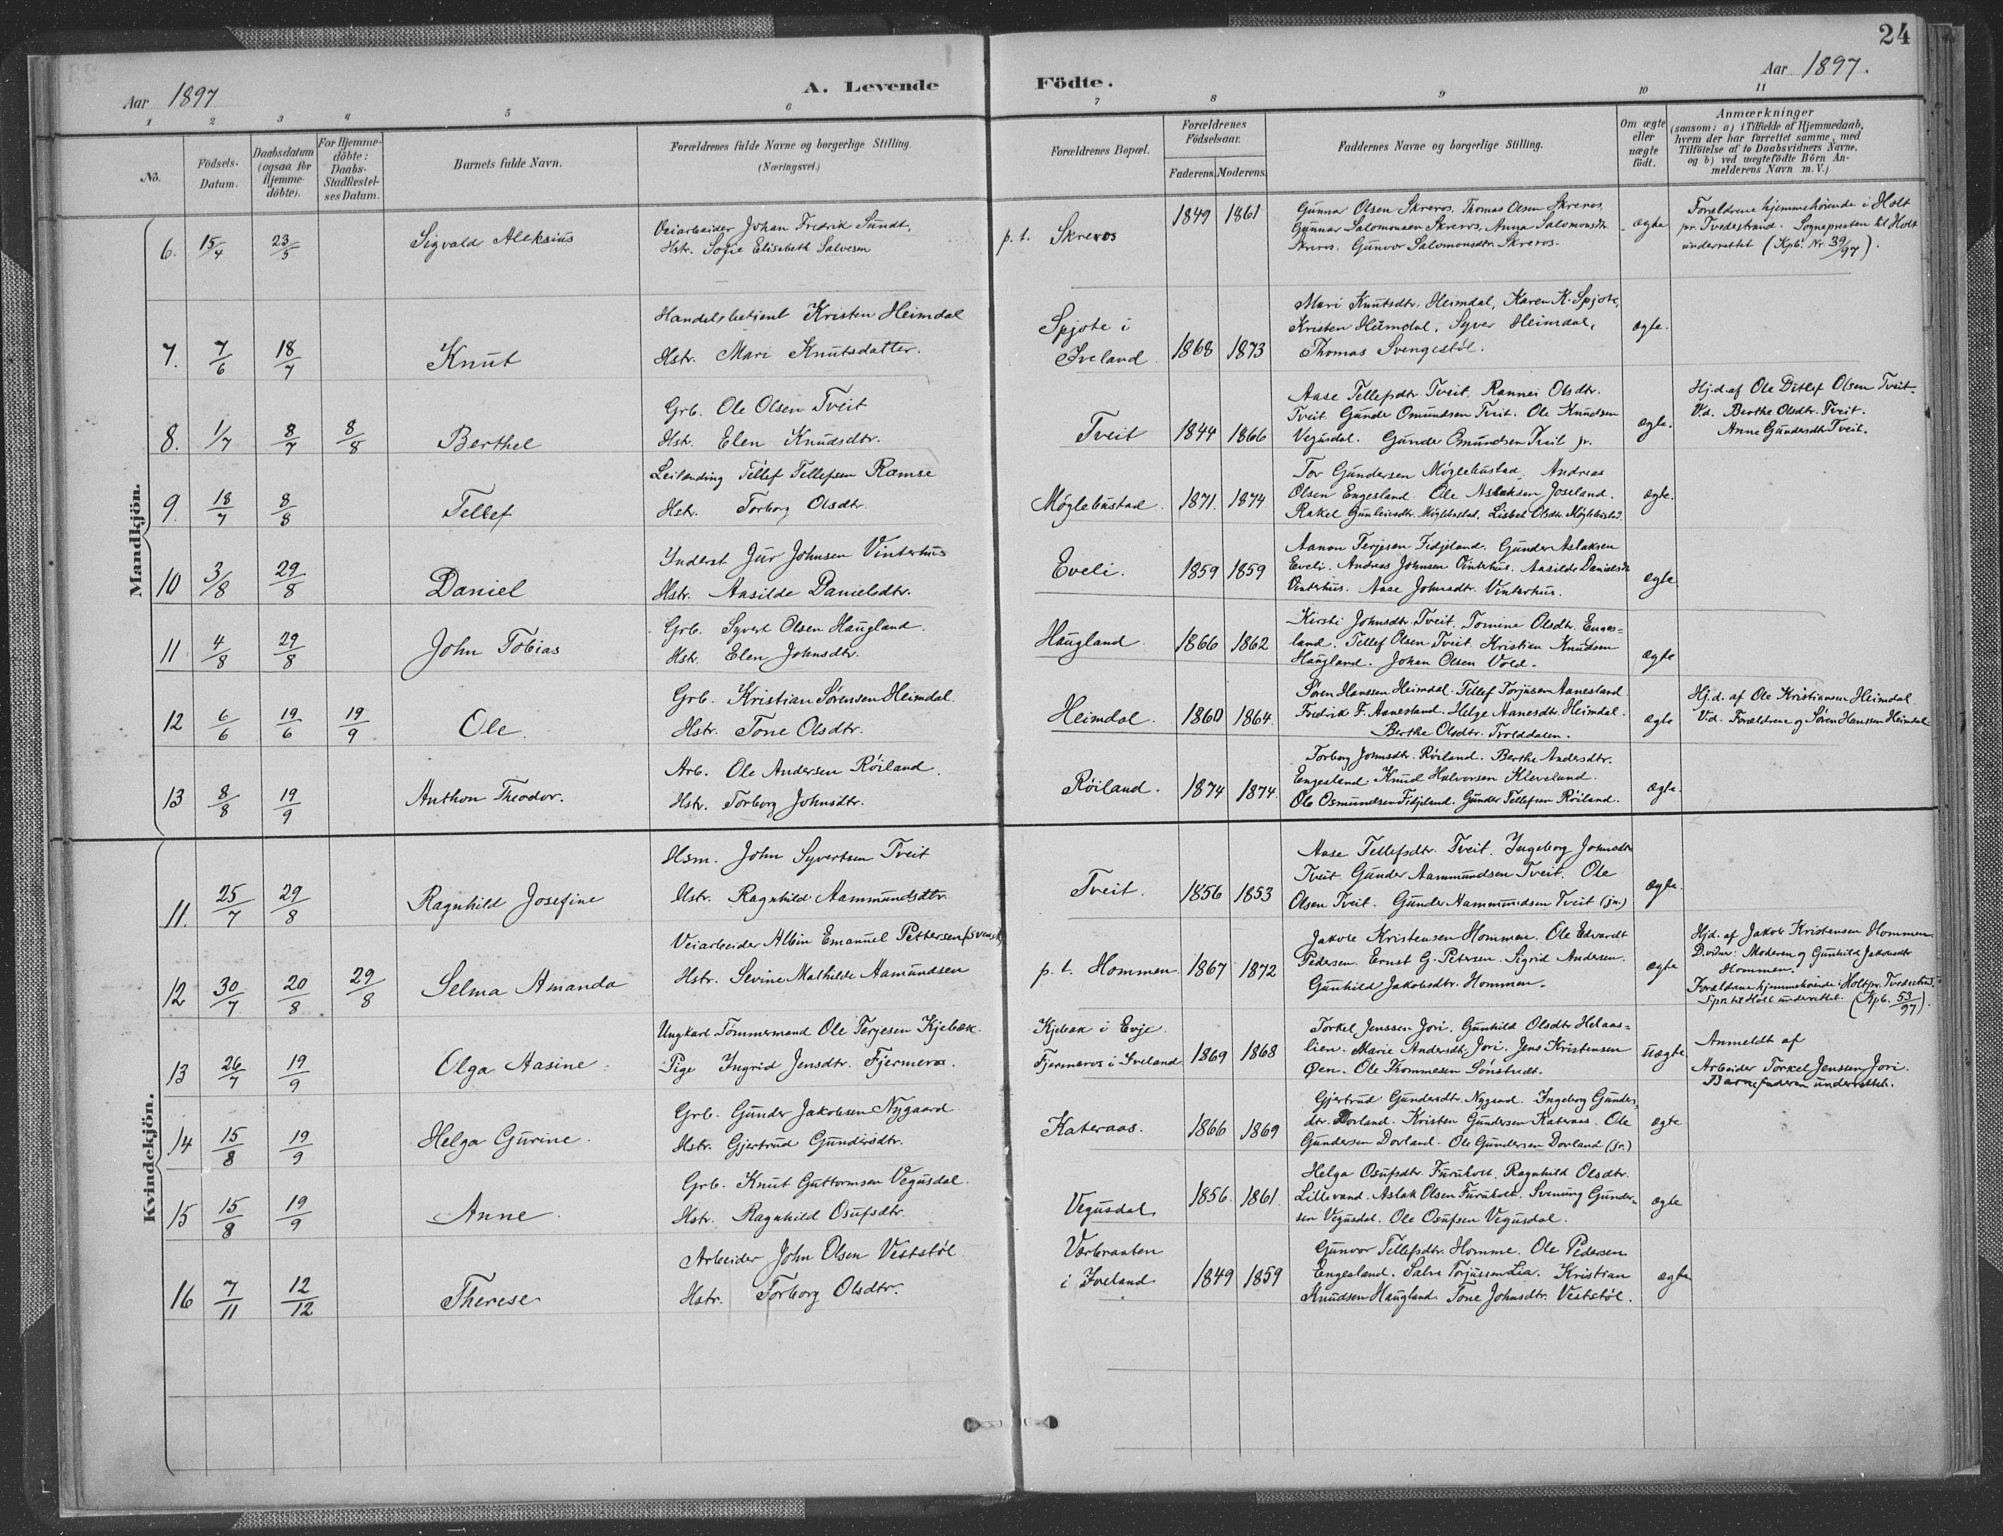 24
Aar 1897
A. Levende
Födte.
Aar 1897.
1 2 3 4 5 6 7 8 9 10 11
No.
Födsels-Datum.
Daabsdatum (ogsaa for Hjemme-döbte).
For Hjemme-döbte: Daabs-Stadfæstel-ses Datum.
Barnets fulde Navn.
Forældrenes fulde Navne og borgerlige Stilling.
(Næringsvei.)
Forældrenes Bopæl.
Forældrenes Födselsaar.
Faderens. Moderens.
Faddernes Navne og borgerlige Stilling.
Om ægte eller uægte födt.
Anmærkninger
(saasom: a) i Tilfælde af Hjemmedaab, hvem der har forrettet samme, med Tilföielse af to Daabsvidners Navne, og b) ved uægtefödte Börn An-melderens Navn m. V.)
Mandkjön.
6. 15/4 23/5 Sigvald Aleksius
Veiarbeider Johan Fredrik Sundt,
Hstr. Sofie Elisabeth Salvesen
p. t. Skreros 1849 1861
Gunnar Olsen Skreros, Thomas Olsen Skreros,
Gunnar Salomonsen Skreros, Anna Salomonsdtr.
Skreros. Gunvor Salomonsdtr. Skreros.
ægte
Forældrene hjemmehörende i Holt
pr. Tvedestrand. Sognepresten til Holt
underrettet (Kpb. Nr. 39/97).
7. 7/6 18/7 Knut
Handelsbetient Kristen Heimdal
Hstr. Mari Knutsdatter.
Spjote i
Iveland 1868 1873
Mari Knutsdtr. Heimdal, Karen K. Spjote,
Kristen Heimdal, Syver Heimdal,
Thomas Svengestøl.
ægte.
8. 1/7 8/7 8/8 Berthel
Grb. Ole Olsen Tveit
Hstr. Elen Knudsdtr.
Tveit 1844 1866
Aase Tellefsdtr Tveit. Rannei Olsdtr.
Tveit Gunder Omundsen Tveit. Ole Knudsen
Vegusdal. Gunder Omundsen Tveit jr.
ægte.
Hj.d. af Ole Ditlef Olsen Tveit.
Vd. Berthe Olsdtr. Tveit.
Anne Gundersdtr Tveit.
9. 18/7 8/8 Tellef
Leilending Tellef Tellefsen Ramse
Hstr. Torborg Olsdtr.
Møglebustad 1871. 1874
Tor Gundersen Møglebustad, Andreas
Olsen Engesland. Ole Aslaksen Joseland.
Rakel Gunleivsdtr. Møglebustad, Lisbet Olsdtr. Møglebustad.
ægte.
10 3/8 29/8 Daniel
Inderst Jur Johnsen Vinterhus
Hstr. Aasilde Danielsdtr.
Eveli. 1859 1859
Aanon Terjesen Fidjeland. Gunder Aslaksen
Eveli. Andreas Johnsen Vinterhus. Aasilde Danielsdtr
Vinterhus. Aase Johnsdtr. Vinterhus.
ægte
11 4/8 29/8 John Tobias
Grb. Syvert Olsen Haugland.
Hstr. Elen Johnsdtr.
Haugland 1866 1862
Kirsti Johnsdtr. Tveit. Tomine Olsdtr. Enges-
land. Tellef Olsen Tveit. Kristian Knudsen
Haugland. Johan Olsen Vold.
ægte
12 6/6 19/6 19/9 Ole.
Grb. Kristian Sørensen Heimdal.
Hstr. Tone Olsdtr.
Heimdal. 1860 1864.
Søren Hanssen Heimdal. Tellef Torjusen Aanesland
Fredrik F. Aanesland. Helge Aanesdtr. Heimdal.
Berthe Olsdtr. Trolddalen.
ægte
Hj.d. af Ole Kristiansen Heimdal
Vd. Forældrene og Søren Hansen Heimdal
13 8/8 19/9 Anthon Theodor.
Arb. Ole Andersen Røiland.
Hstr. Torborg Johnsdtr.
Røiland. 1874 1874.
Torborg Johnsdtr. Røiland. Berthe Andersdtr.
Engesland. Knud Halvorsen Kleveland.
Ole Osmundsen Fidjeland. Gunder Tellefsen Røiland.
ægte.
Kvindekjön.
11. 25/7 29/8 Ragnhild Josefine
Hsm. John Syvertsen Tveit
Hstr. Ragnhild Aammundsdtr.
Tveit. 1856 1853
Aase Tellefsdtr. Tveit. Ingeborg Johnsdtr
Tveit. Gunder Aammundsen Tveit. Ole
Olsen Tveit. Gunder Aammundsen Tveit (jr.)
ægte.
12 30/7 20/8 29/8 Selma Amanda
Veiarbeider Albin Emanuel Pettersen (svensk)
Hstr. Sevine Mathilde Aamundsen
p. t. Hommen. 1867 1872
Jakob Kristensen Hommen. Ole Edvardt
Pedersen. Ernst G. Petersen. Sigrid Andersen.
Gunhild Jakobsdtr. Hommen.
ægte
Hj.d. af Jakob Kristensen Hommen
Moderen og Gunhild Jakobsdtr
Hommen.
Forældrene hjemmehörende i Holt pr. Tvedestrand.
Spr. til Holt underrettet. (Kpb. 53/97).
13 26/7 19/9 Olga Aasine.
Ungkarl Tømmermand Ole Terjesen Kjebæk.
Pige Ingrid Jensdtr. Fjermeros.
Kjebæk i Evje.
Fjermeros i Iveland 1869 1868
Torkel Jenssen Jori. Gunhild Olsdtr Helaas-
lien. Marie Andersdtr. Jori. Jens Kristensen
Øen. Ole Thommesen Sønstvedt.
uægte
Anmeldt af
Arbeider Torkel Jenssen Jori.
Barnefaderen underrettet.
14 15/8 19/9 Helga Gurine.
Grb. Gunder Jakobsen Nygaard
Hstr. Gjertrud Gundersdtr.
Kateraas. 1866 1869
Gjertrud Gundersdtr. Nygaard. Ingeborg Gunders-
dtr. Dovland. Kristen Gundersen Kateraas. Ole
Gundersen Dovland. Ole Gundersen Dovland (jr.)
ægte
15 15/8 19/9 Anne.
Grb. Knut Guttormsen Vegusdal.
Hstr. Ragnhild Osufsdtr.
Vegusdal 1856. 1861.
Helga Osufsdtr. Furuholt. Ragnhild Olsdtr.
Lillevand. Aslak Olsen Furuholt. Svening Gunder-
sen Vegusdal. Ole Osufsen Vegusdal.
ægte
16 7/11 12/12 Therese
Arbeider John Olsen Veststøl
Hstr. Torborg Olsdtr.
Værbraaten
i Iveland 1849 1859
Gunvor Tellefsdtr. Homme. Ole Pedersen
Engesland. Salve Torjussen Lia. Kristian
Knudsen Haugland. Tone Johnsdtr. Veststøl.
ægte